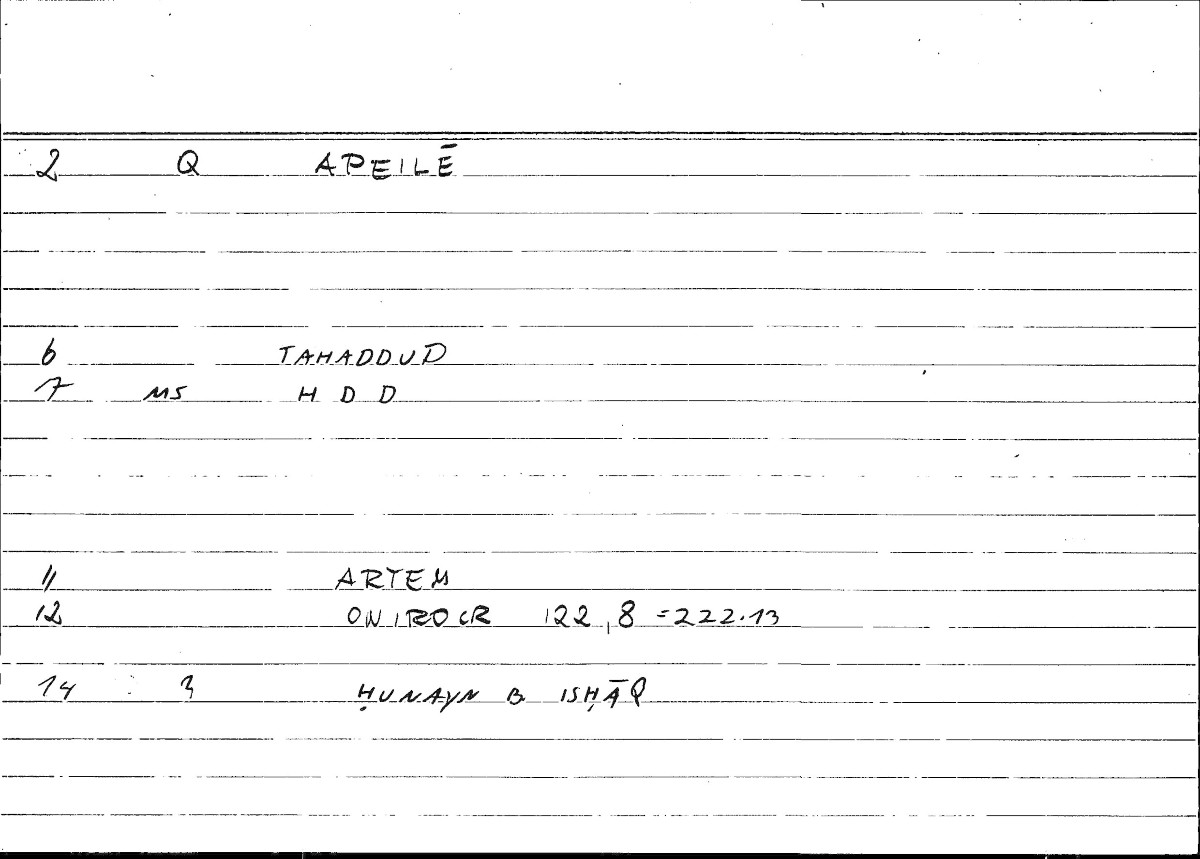 2 Q APEILĒ
6 TAHADDUD
7 MS H D D
11 ARTEM
12 ONIROCR 122,8 =222.13
14 3 ḤUNAYN B ISḤĀQ